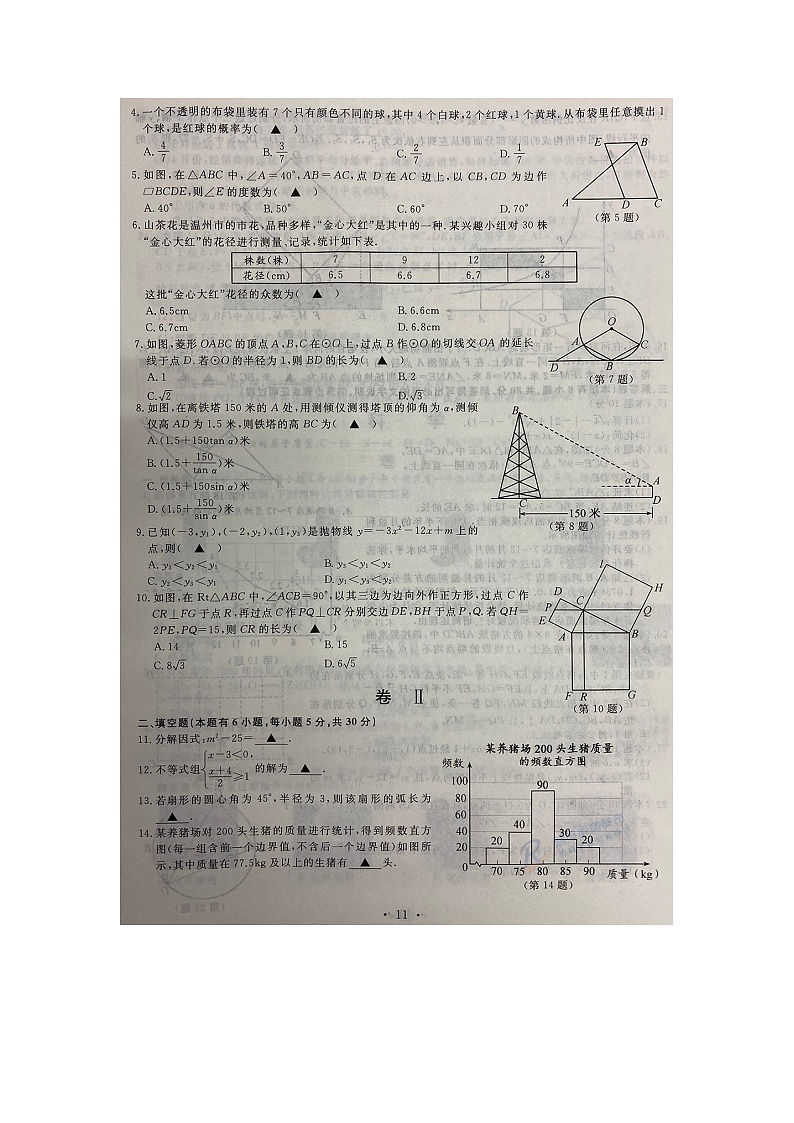 4.一个不透明的布袋里装有7个只有颜色不同的球,其中4个白球,2个红球,1个黄球.从布袋里任意摸出1
个球,是红球的概率为( ▲ )
A. 4/7 B. 3/7 C. 2/7 D. 1/7
5.如图,在△ABC中,∠A=40°,AB=AC,点D在AC边上,以CB,CD为边作
▱BCDE,则∠E的度数为( ▲ )
A. 40° B. 50° C. 60° D. 70°
E B A D C
(第5题)
6.山茶花是温州市的市花、品种多样,“金心大红”是其中的一种.某兴趣小组对30株
“金心大红”的花径进行测量、记录,统计如下表.
株数(株) 7 9 12 2
花径(cm) 6.5 6.6 6.7 6.8
这批“金心大红”花径的众数为( ▲ )
A. 6.5cm B. 6.6cm
C. 6.7cm D. 6.8cm
7.如图,菱形OABC的顶点A,B,C在⊙O上,过点B作⊙O的切线交OA的延长
线于点D.若⊙O的半径为1,则BD的长为( ▲ )
A. 1 B. 2
C. √2 D. √3
O A C D B
(第7题)
8.如图,在离铁塔150米的A处,用测倾仪测得塔顶的仰角为α,测倾
仪高AD为1.5米,则铁塔的高BC为( ▲ )
A. (1.5+150tan α)米
B. (1.5+150/tan α)米
C. (1.5+150sin α)米
D. (1.5+150/sin α)米
B α A C D
150米
(第8题)
9.已知(-3,y₁),(-2,y₂),(1,y₃)是抛物线y=-3x²-12x+m上的
点,则( ▲ )
A. y₃<y₂<y₁ B. y₃<y₁<y₂
C. y₂<y₃<y₁ D. y₁<y₃<y₂
10.如图,在Rt△ABC中,∠ACB=90°,以其三边为边向外作正方形,过点C作
CR⊥FG于点R,再过点C作PQ⊥CR分别交边DE,BH于点P,Q.若QH=
2PE,PQ=15,则CR的长为( ▲ )
A. 14 B. 15
C. 8√3 D. 6√5
I H D C P Q E A B F R G
(第10题)
卷 Ⅱ
二、填空题(本题有6小题,每小题5分,共30分)
11.分解因式:m²-25= ▲ .
12.不等式组{x-3<0, (x+4)/2≥1 的解为 ▲ .
13.若扇形的圆心角为45°,半径为3,则该扇形的弧长为
▲ .
14.某养猪场对200头生猪的质量进行统计,得到频数直方
图(每一组含前一个边界值,不含后一个边界值)如图所
示,其中质量在77.5kg及以上的生猪有 ▲ 头.
某养猪场200头生猪质量
的频数直方图
频数
100
80
60
40
20
0
20 40 90 30 20
70 75 80 85 90 质量(kg)
(第14题)
· 11 ·